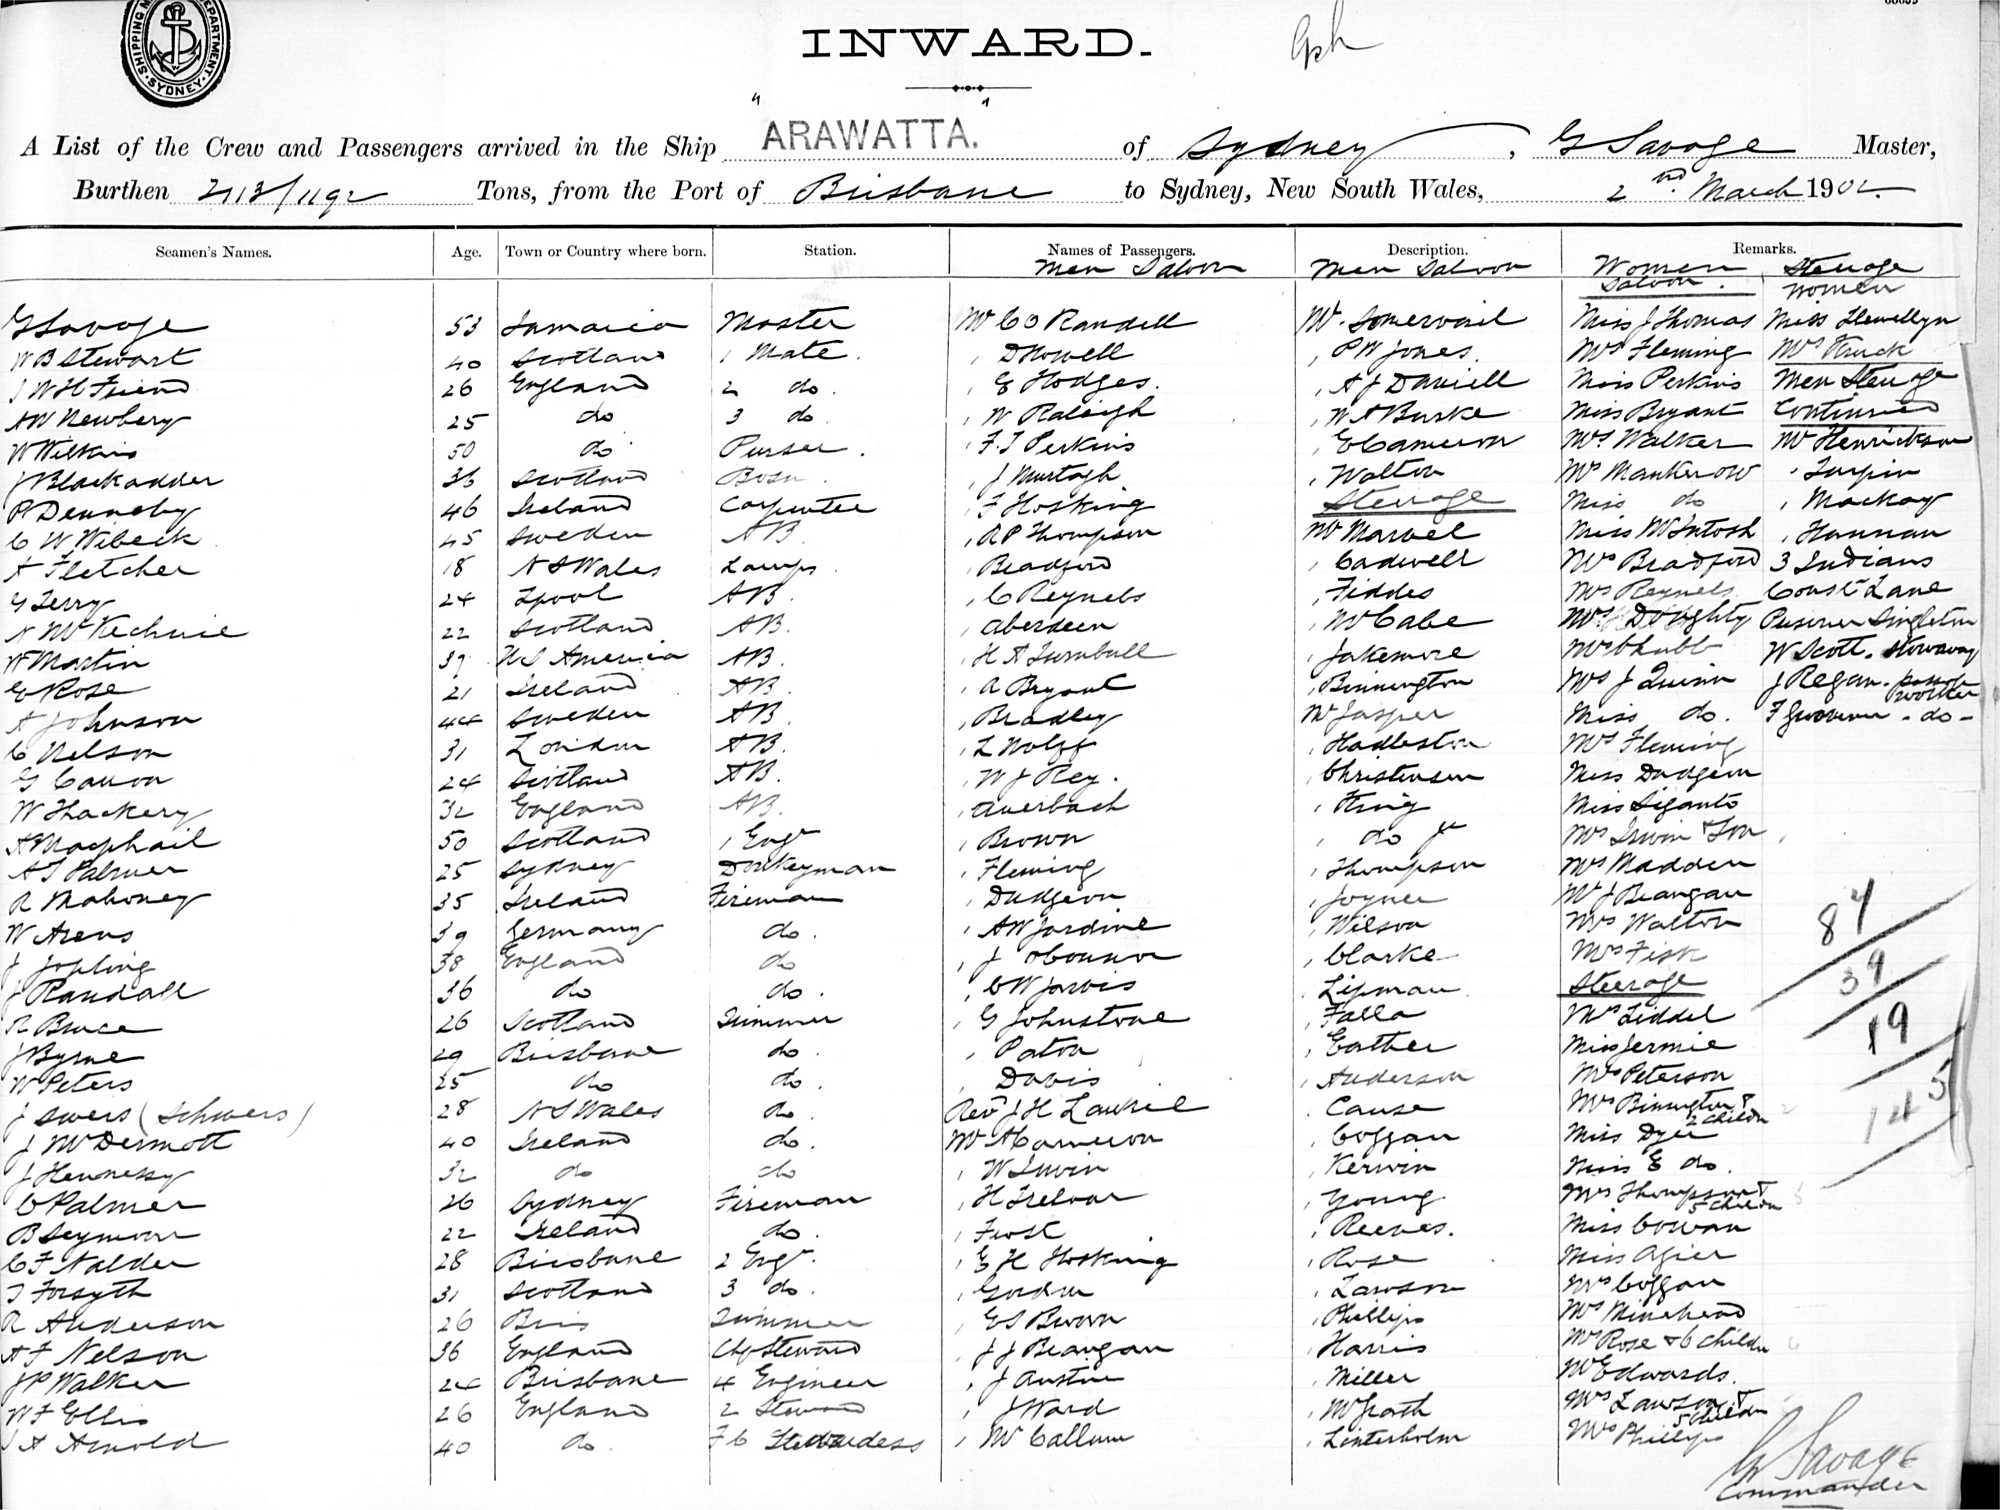 SHIPPING M DEPARTMENT. SYDNEY.
INWARD.
A List of the Crew and Passengers arrived in the Ship "ARAWATTA." of Sydney, G Savage Master,
Burthen 2113/1192 Tons, from the Port of Brisbane to Sydney, New South Wales, 2nd March 1902
Seamen's Names. Age. Town or Country where born. Station. Names of Passengers. Description. Remarks.
Men Saloon Men Saloon Women Saloon. Steerage Women
G Savage 53 Jamaica Master Mr C O Randell Mr. Somervail Miss J Thomas Miss Llewellyn
W B Stewart 40 Scotland 1 Mate. , D Nowell , P W Jones. Mrs Fleming Mrs
J W H Friend 26 England 2 do. , G Hodges. , A J Daniell Miss Perkins Men Steerage
A W Newbery 25 do 3 do. , W Raleigh , W A Burke Miss Bryant Continued
W Wilkins 50 do Purser. , F. J Perkins , E Cameron Mrs Walker Mr Henrickson
J Blackadder 36 Scotland Bosn. , J Murtagh , Walton Mrs Mankerow , Turpin
P Denneby 46 Ireland Carpenter , F Hosking Steerage Miss do , Mackay
C W Wibeck 45 Sweden AB. , A P Thompson Mr Marvel Miss McIntosh , Hannan
A Fletcher 18 N S Wales Lamps. , Bradford , Cadwell Mrs Bradford 3 Indians
G Terry 24 Lpool AB. , C Reynels , Fiddes Mrs Reynels Const Lane
N McKechnie 22 Scotland AB. , Aberdeen , McCabe Mrs Doughty Prisoner Singleton
W Martin 37 U S America AB. , H A Turnbull , Jakemore Mrs Chubb W Scott. Stowaway
G Rose 21 Ireland AB. , A Bryant , Binnington Mrs J Quinn J Regan. passage worker
A Johnson 44 Sweden AB. , Bradley Mr Jasper Miss do. F - do -
C Nelson 31 London AB. , L Wolff , Hadleston Mrs Fleming
G Cannon 24 Scotland AB. , W J Rey. , Christensen Miss Dudgeon
W Thackery 32 England AB. , Auerbach , King Miss Siganto
A Macphail 50 Scotland 1 Engr , Brown , do jr Mrs Irwin & Son
A J Palmer 25 Sydney Donkeyman , Fleming , Thompson Mrs Madden
R Mahoney 35 Ireland Fireman , Dudgeon , Joyner Mrs J Beangan
W Arens 39 Germany do. , A W Jardine , Wilson Mrs Walton
J Jopling 38 England do , J O'Connor , Clarke Mrs Fisk
J Randall 36 do do. , C W Jarvis . Lipman Steerage
R Bruce 26 Scotland Trimmer , G Johnstone , Falla Mrs Liddel
J Byrne 29 Brisbane do. , Paton , Eather Miss Jermie
W Peters 25 do do. , Davis , Anderson Mrs Peterson
J Swers (Schwers) 28 N S Wales do. Revd J H . Cause Mrs Binnington & 2 Childn
J McDermott 40 Ireland do. Mr A Cameron , Coggan Miss Dyer
J Hennessy 32 do do , W Irwin , Kerwin Miss E do.
C Palmer 26 Sydney Fireman , H Treloar , Young Mrs Thompson & 5 Childn
B Seymour 22 Ireland do. , Frost , Reeves. Miss Cowan
C F Nalder 28 Brisbane 2 Engr. , G H Hosking , Rose Miss Agier
J Forsyth 31 Scotland 3 do. , Gordon , Lawson Mrs Coggan
R Anderson 26 Bris Trimmer , E S Brown , Phillips Mrs Minehead
A F Nelson 36 England Chf Steward , J J Beangan , Harris Mrs Rose & 6 Childn
J P Walker 24 Brisbane 4 Engineer , J Austin , Miller Mrs Edwards.
W F Ellis 26 England 2 Steward , J Ward , McGrath Mrs Lawson & 5 Childn
J A Arnold 40 do. F C Stewardess , McCallum , Linterholm Mrs Phillips
84
39
19
5
145
G Savage
Commander